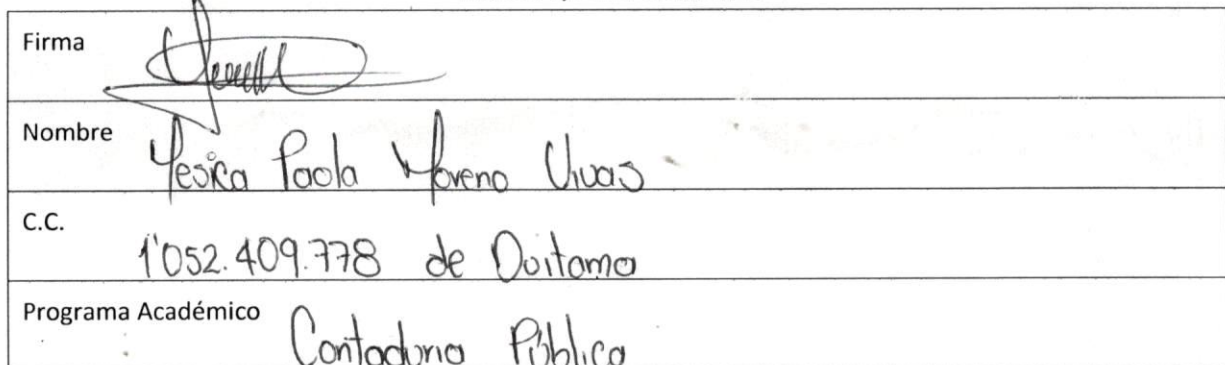 Firma
Nombre
Yesica Paola Moreno Vivas
C.C.
1'052.409.778 de Duitama
Programa Académico
Contaduria Pública